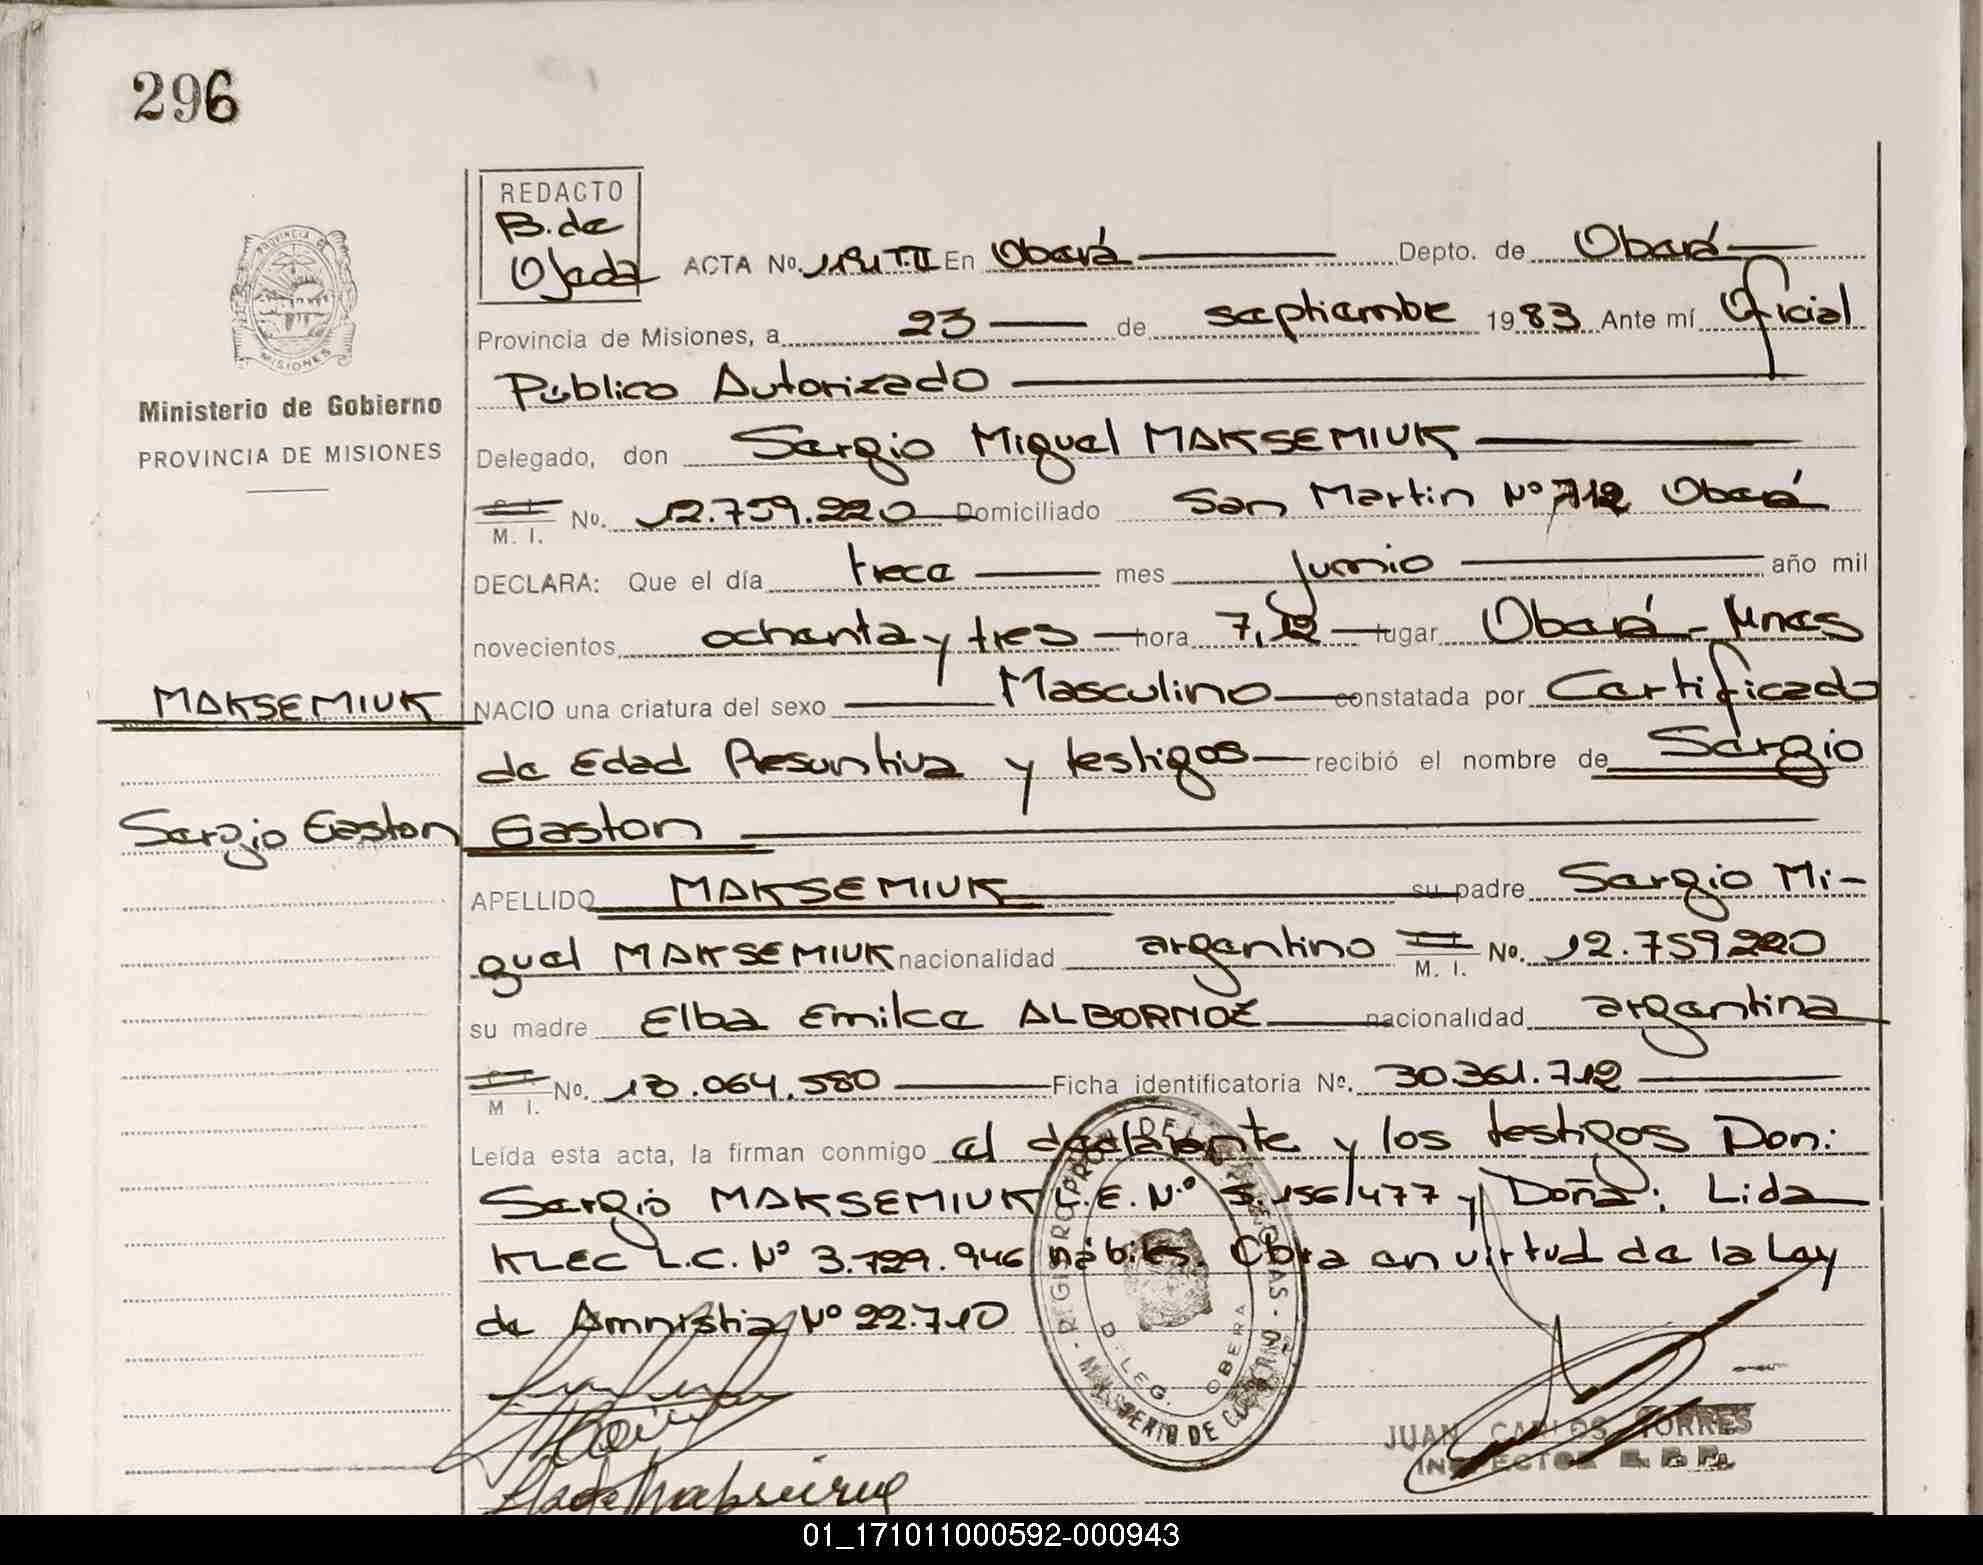 296
PROVINCIA DE
MISIONES
Ministerio de Gobierno
PROVINCIA DE MISIONES
REDACTO
B. de
Ojeda
ACTA No. 1191 T.II En Oberá Depto. de Oberá
Provincia de Misiones, a 23 de septiembre 1983 Ante mí Oficial
Público Autorizado
Delegado, don Sergio Miguel MAKSEMIUK
M. I. No. 12.759.220 Domiciliado San Martin Nº 712 Oberá
DECLARA: Que el día trece mes junio año mil
novecientos ochenta y tres hora 7,12 lugar Oberá - Mnes
MAKSEMIUK
NACIO una criatura del sexo Masculino constatada por Certificado
de Edad Presuntiva y testigos recibió el nombre de Sergio
Sergio Gaston
Gaston
APELLIDO MAKSEMIUK su padre Sergio Mi-
guel MAKSEMIUK nacionalidad argentino M. I. No. 12.759.220
su madre Elba Emilce ALBORNOZ nacionalidad argentina
M I. No. 13.064.580 Ficha identificatoria Nº. 30.361.712
Leída esta acta, la firman conmigo el declarante y los testigos Don:
Sergio MAKSEMIUK L.E. Nº 5.156/477 y Doña: Lida
KLEC L.C. Nº 3.729.946 hábiles. Obra en virtud de la Ley
de Amnistia Nº 22.710
DELEG. OBERA
MINISTERIO DE GOBIERNO
JUAN CARLOS TORRES
INSPECTOR R. P. P.
01_171011000592-000943